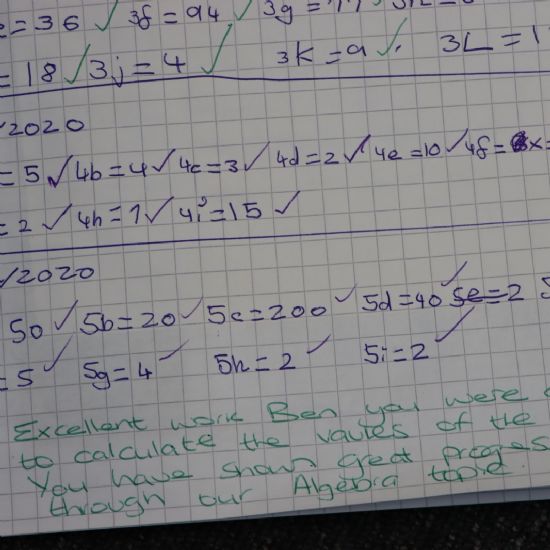 = 36 ✓ 3f = 94 ✓ 3g =
= 18 ✓ 3j = 4 ✓ 3K = 9 ✓ 3L = 1
/2020
= 5 ✓ 4b = 4 ✓ 4c = 3 ✓ 4d = 2 ✓ 4e = 10 ✓ 4f = x =
= 2 ✓ 4h = 1 ✓ 4i = 15 ✓
/2020
50 ✓ 5b = 20 ✓ 5c = 200 ✓ 5d = 40 ✓ 5e = 2
= 5 ✓ 5g = 4 ✓ 5h = 2 ✓ 5i = 2 ✓
Excellent work Ben you were
to calculate the values of the
You have shown great progess
through our Algebra topic.